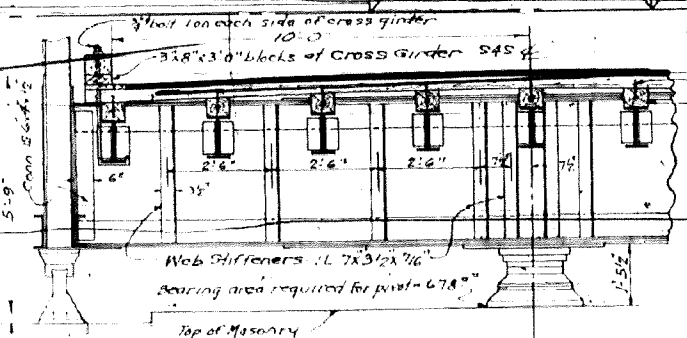 3/4" bolt 1 on each side of cross girder
10'-0"
3"x8"x3'0" blocks at Cross Girder S4S
5'-9"
6"
3½"
2'-6"
2'-6"
2'-6"
7½"
7½"
Web Stiffeners 1L 7"x3½"x7/16"
Bearing area required for pivot = 678
1'-5½"
Top of Masonry